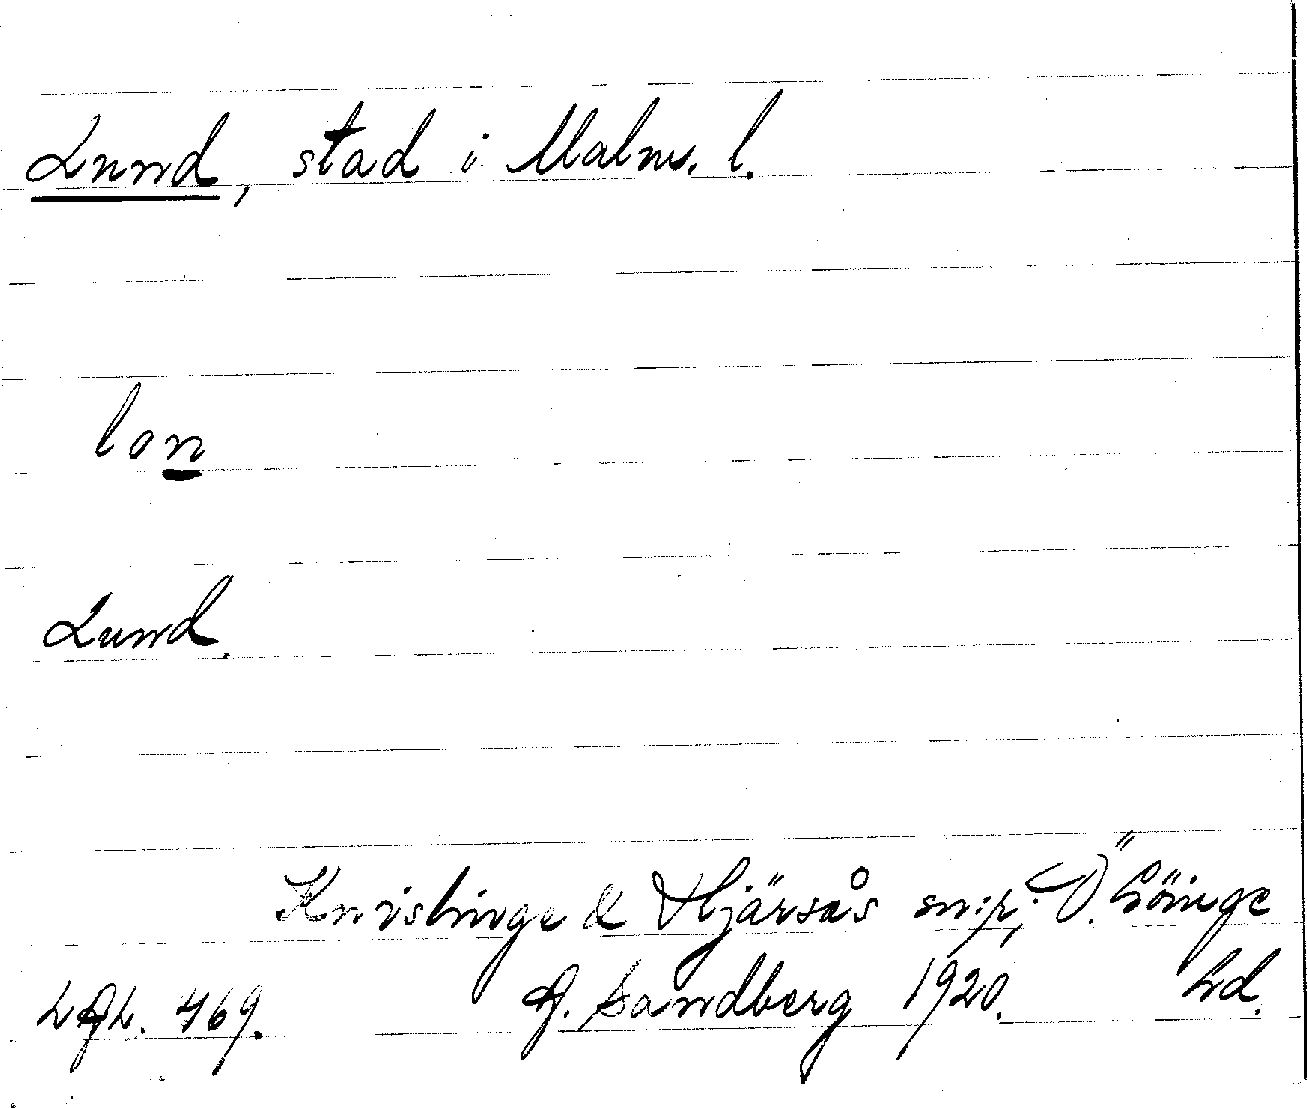 Lund, stad i Malm. l.
lon
Lund.
Knislinge & Hjärsås sn:r, Ö. Göinge
LAL. 469. G. Sandberg 1920. hd.